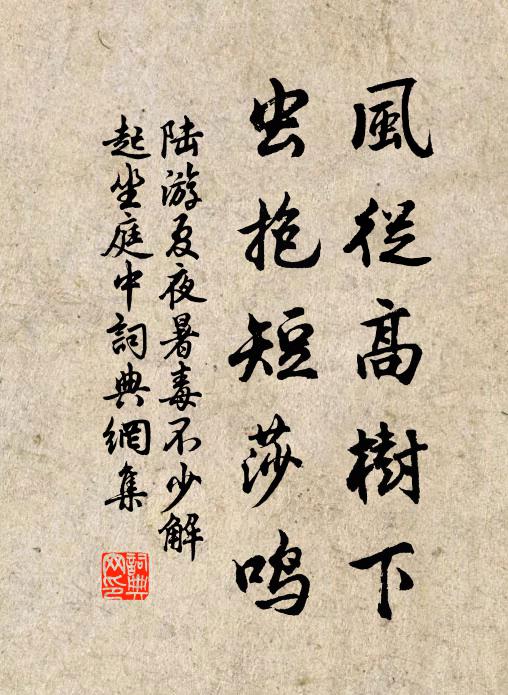 風從高樹下
虫抱短莎鳴
陆游夏夜暑毒不少解
起坐庭中詞典網集
詞典
网印